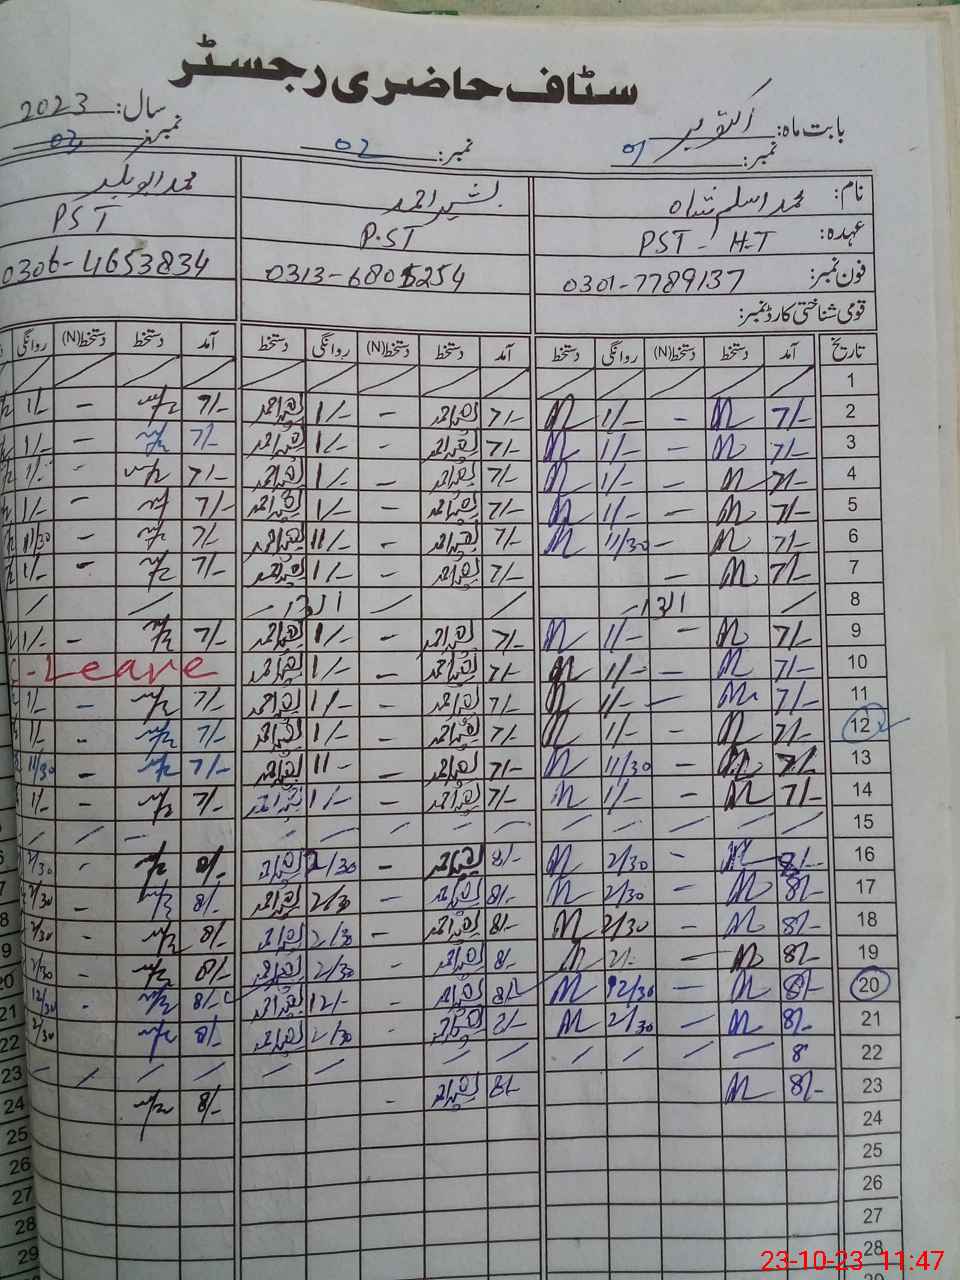 سٹاف حاضری رجسٹر
بابت ماہ: اکتوبر سال: 2023
نمبر: 01 نمبر: 02 نمبر: 03
نام: محمد اسلم شاہ بشیر احمد محمد ابوبکر
عہدہ: PST - H-T P.ST PST
فون نمبر: 0301-7789137 0313-6805254 0306-4653834
قومی شناختی کارڈ نمبر:
تاریخ آمد دستخط دستخط(N) روانگی دستخط آمد دستخط دستخط(N) روانگی دستخط آمد دستخط دستخط(N) روانگی
1
2 7/- - 1/- 7/- بشیر احمد - 1/- بشیر احمد 7/- - 1/-
3 7/- - 1/- 7/- بشیر احمد - 1/- بشیر احمد 7/- - 1/-
4 7/- - 1/- 7/- بشیر احمد - 1/- بشیر احمد 7/- - 1/-
5 7/- - 1/- 7/- بشیر احمد - 1/- بشیر احمد 7/- - 1/-
6 7/- - 11/30 7/- بشیر احمد - 11/- بشیر احمد 7/- - 11/30
7 7/- - 7/- بشیر احمد - 1/- بشیر احمد 7/- - 1/-
8 اتوار اتوار
9 7/- - 1/- 7/- بشیر احمد - 1/- بشیر احمد 7/- - 1/-
10 7/- - 1/- 7/- بشیر احمد - 1/- بشیر احمد Leave
11 7/- - 1/- 7/- بشیر احمد - 1/- بشیر احمد 7/- - 1/-
12 7/- - 1/- 7/- بشیر احمد - 1/- بشیر احمد 7/- - 1/-
13 7/- - 11/30 7/- بشیر احمد - 11- بشیر احمد 7/- - 11/30
14 7/- - 1/- 7/- بشیر احمد - 1/- بشیر احمد 7/- - 1/-
15
16 8/- - 2/30 8/- بشیر احمد - 2/30 بشیر احمد 8/- - 2/30
17 8/- - 2/30 8/- بشیر احمد - 2/30 بشیر احمد 8/- - 2/30
18 8/- - 2/30 8/- بشیر احمد - 2/30 بشیر احمد 8/- - 2/30
19 8/- - 2/- 8/- بشیر احمد 2/30 بشیر احمد 8/- - 2/30
20 8/- - 12/30 8/- بشیر احمد - 12/- بشیر احمد 8/- - 12/30
21 8/- - 2/30 2/- بشیر احمد - 2/30 بشیر احمد 8/- - 2/30
22 8
23 8/- 8/- بشیر احمد - 8/-
24
25
26
27
28
23-10-23 11:47